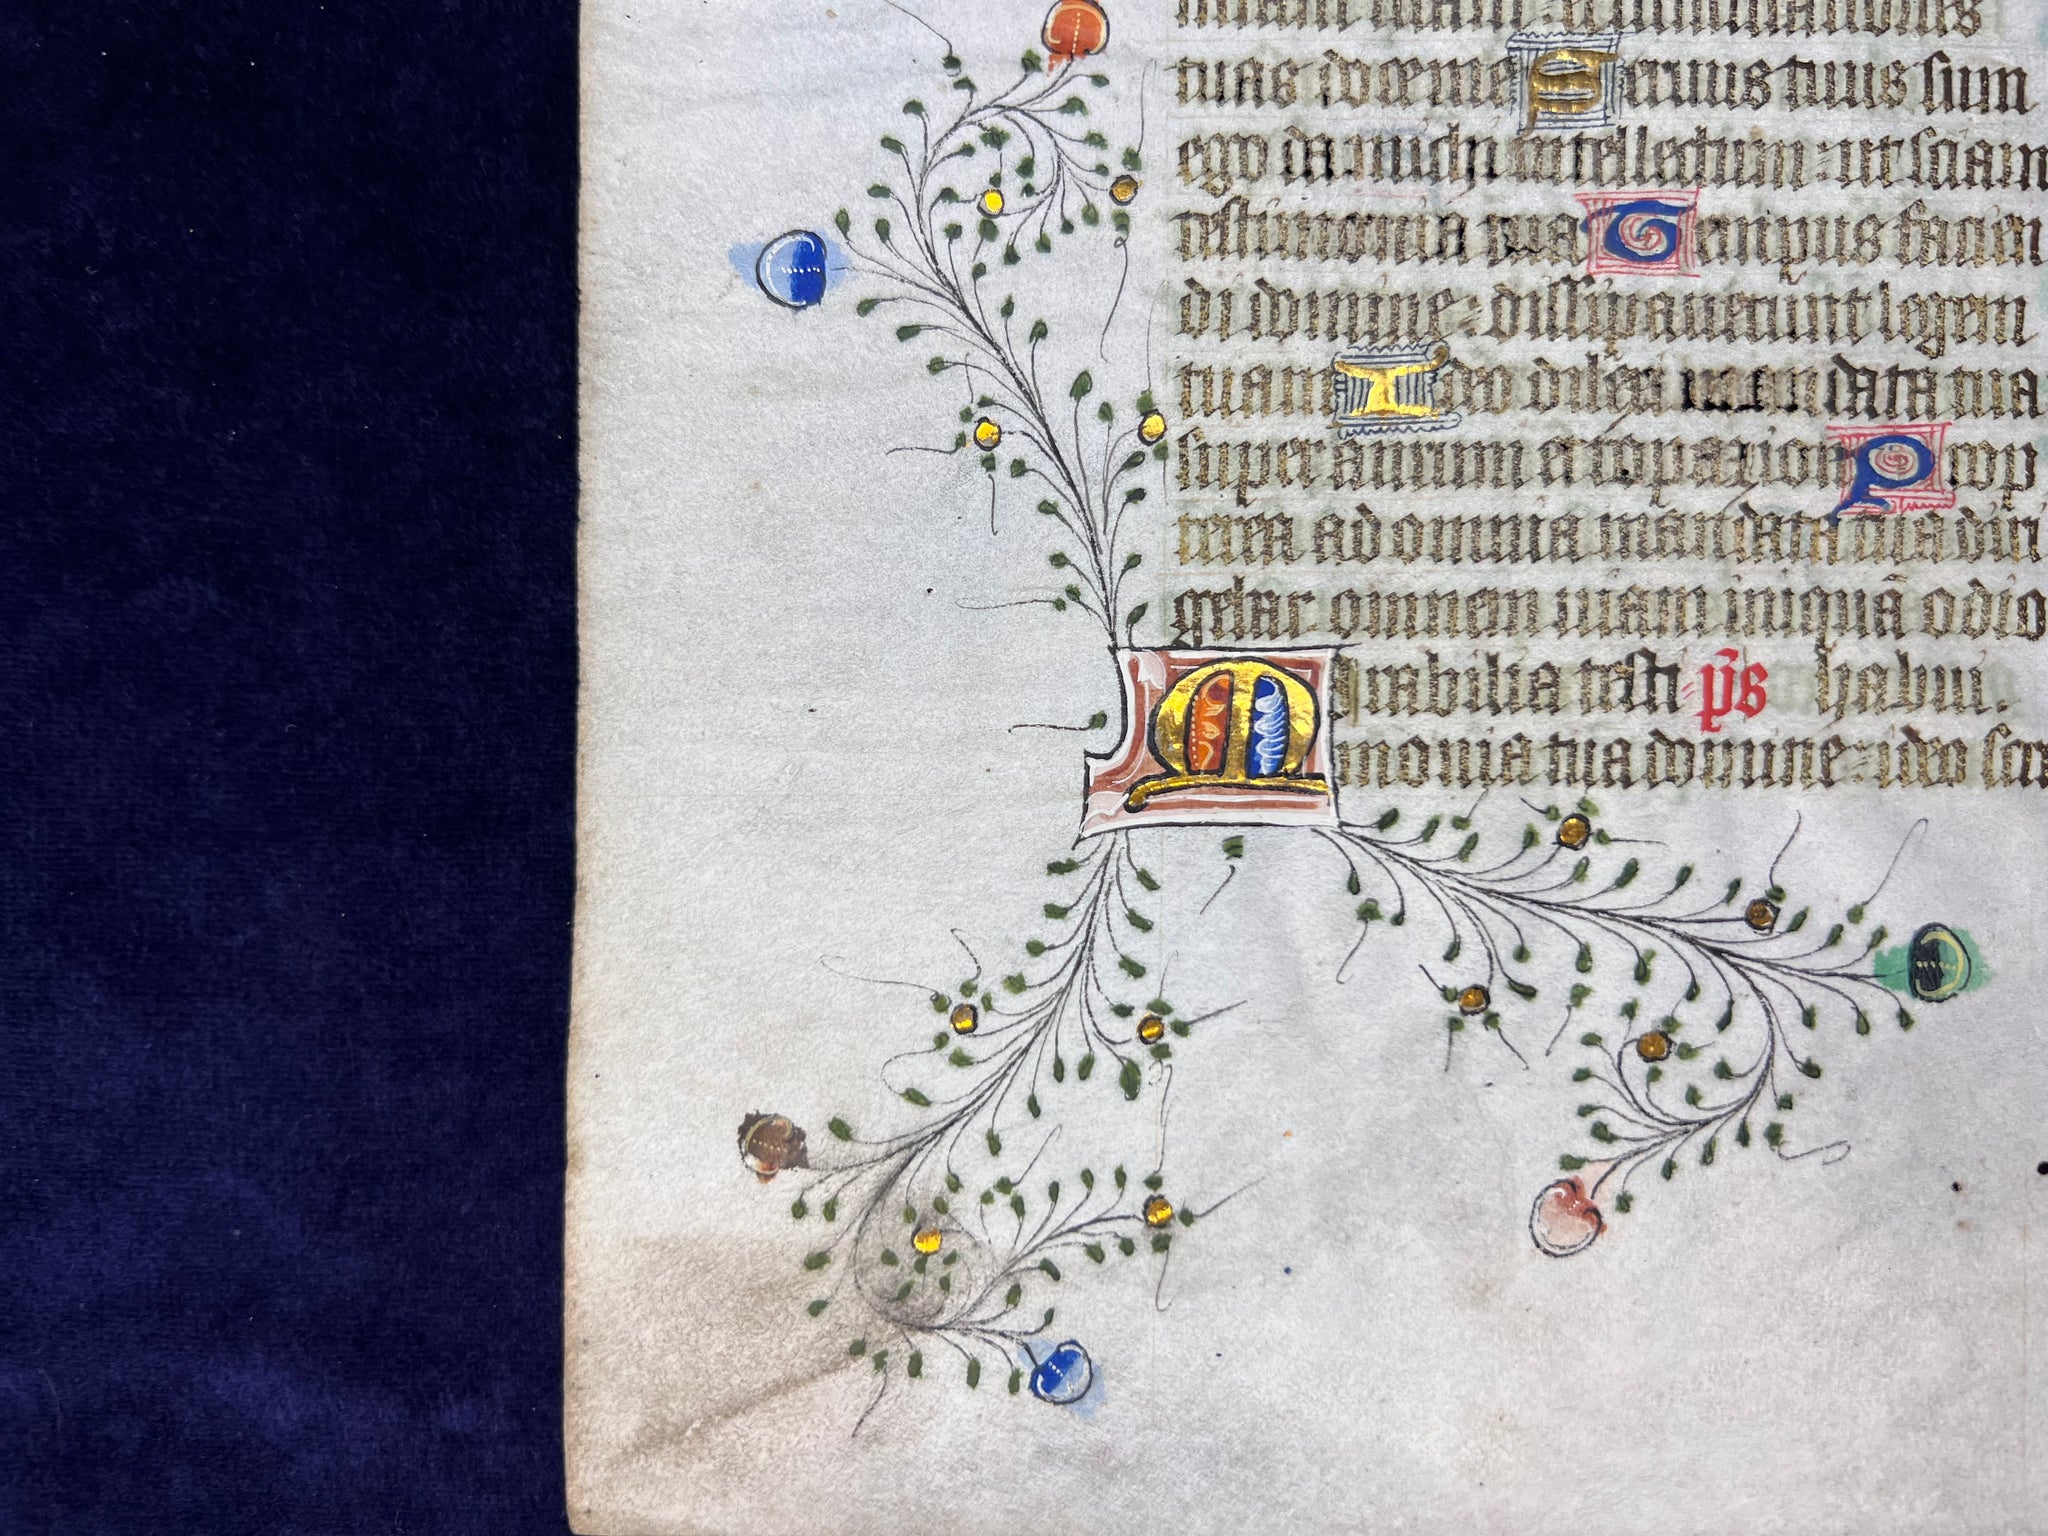 tuas doce me Seruus tuus sum
ego da michi intellectum : ut sciam
testimonia tua Tempus facien
di domine : dissipauerunt legem
tuam Ideo dilexi mandata tua
super aurum et topazion Prop
terea ad omnia mandata tua diri
gebar omnem uiam iniquā odio
Mirabilia testi p̄s habui.
monia tua domine : ideo scru